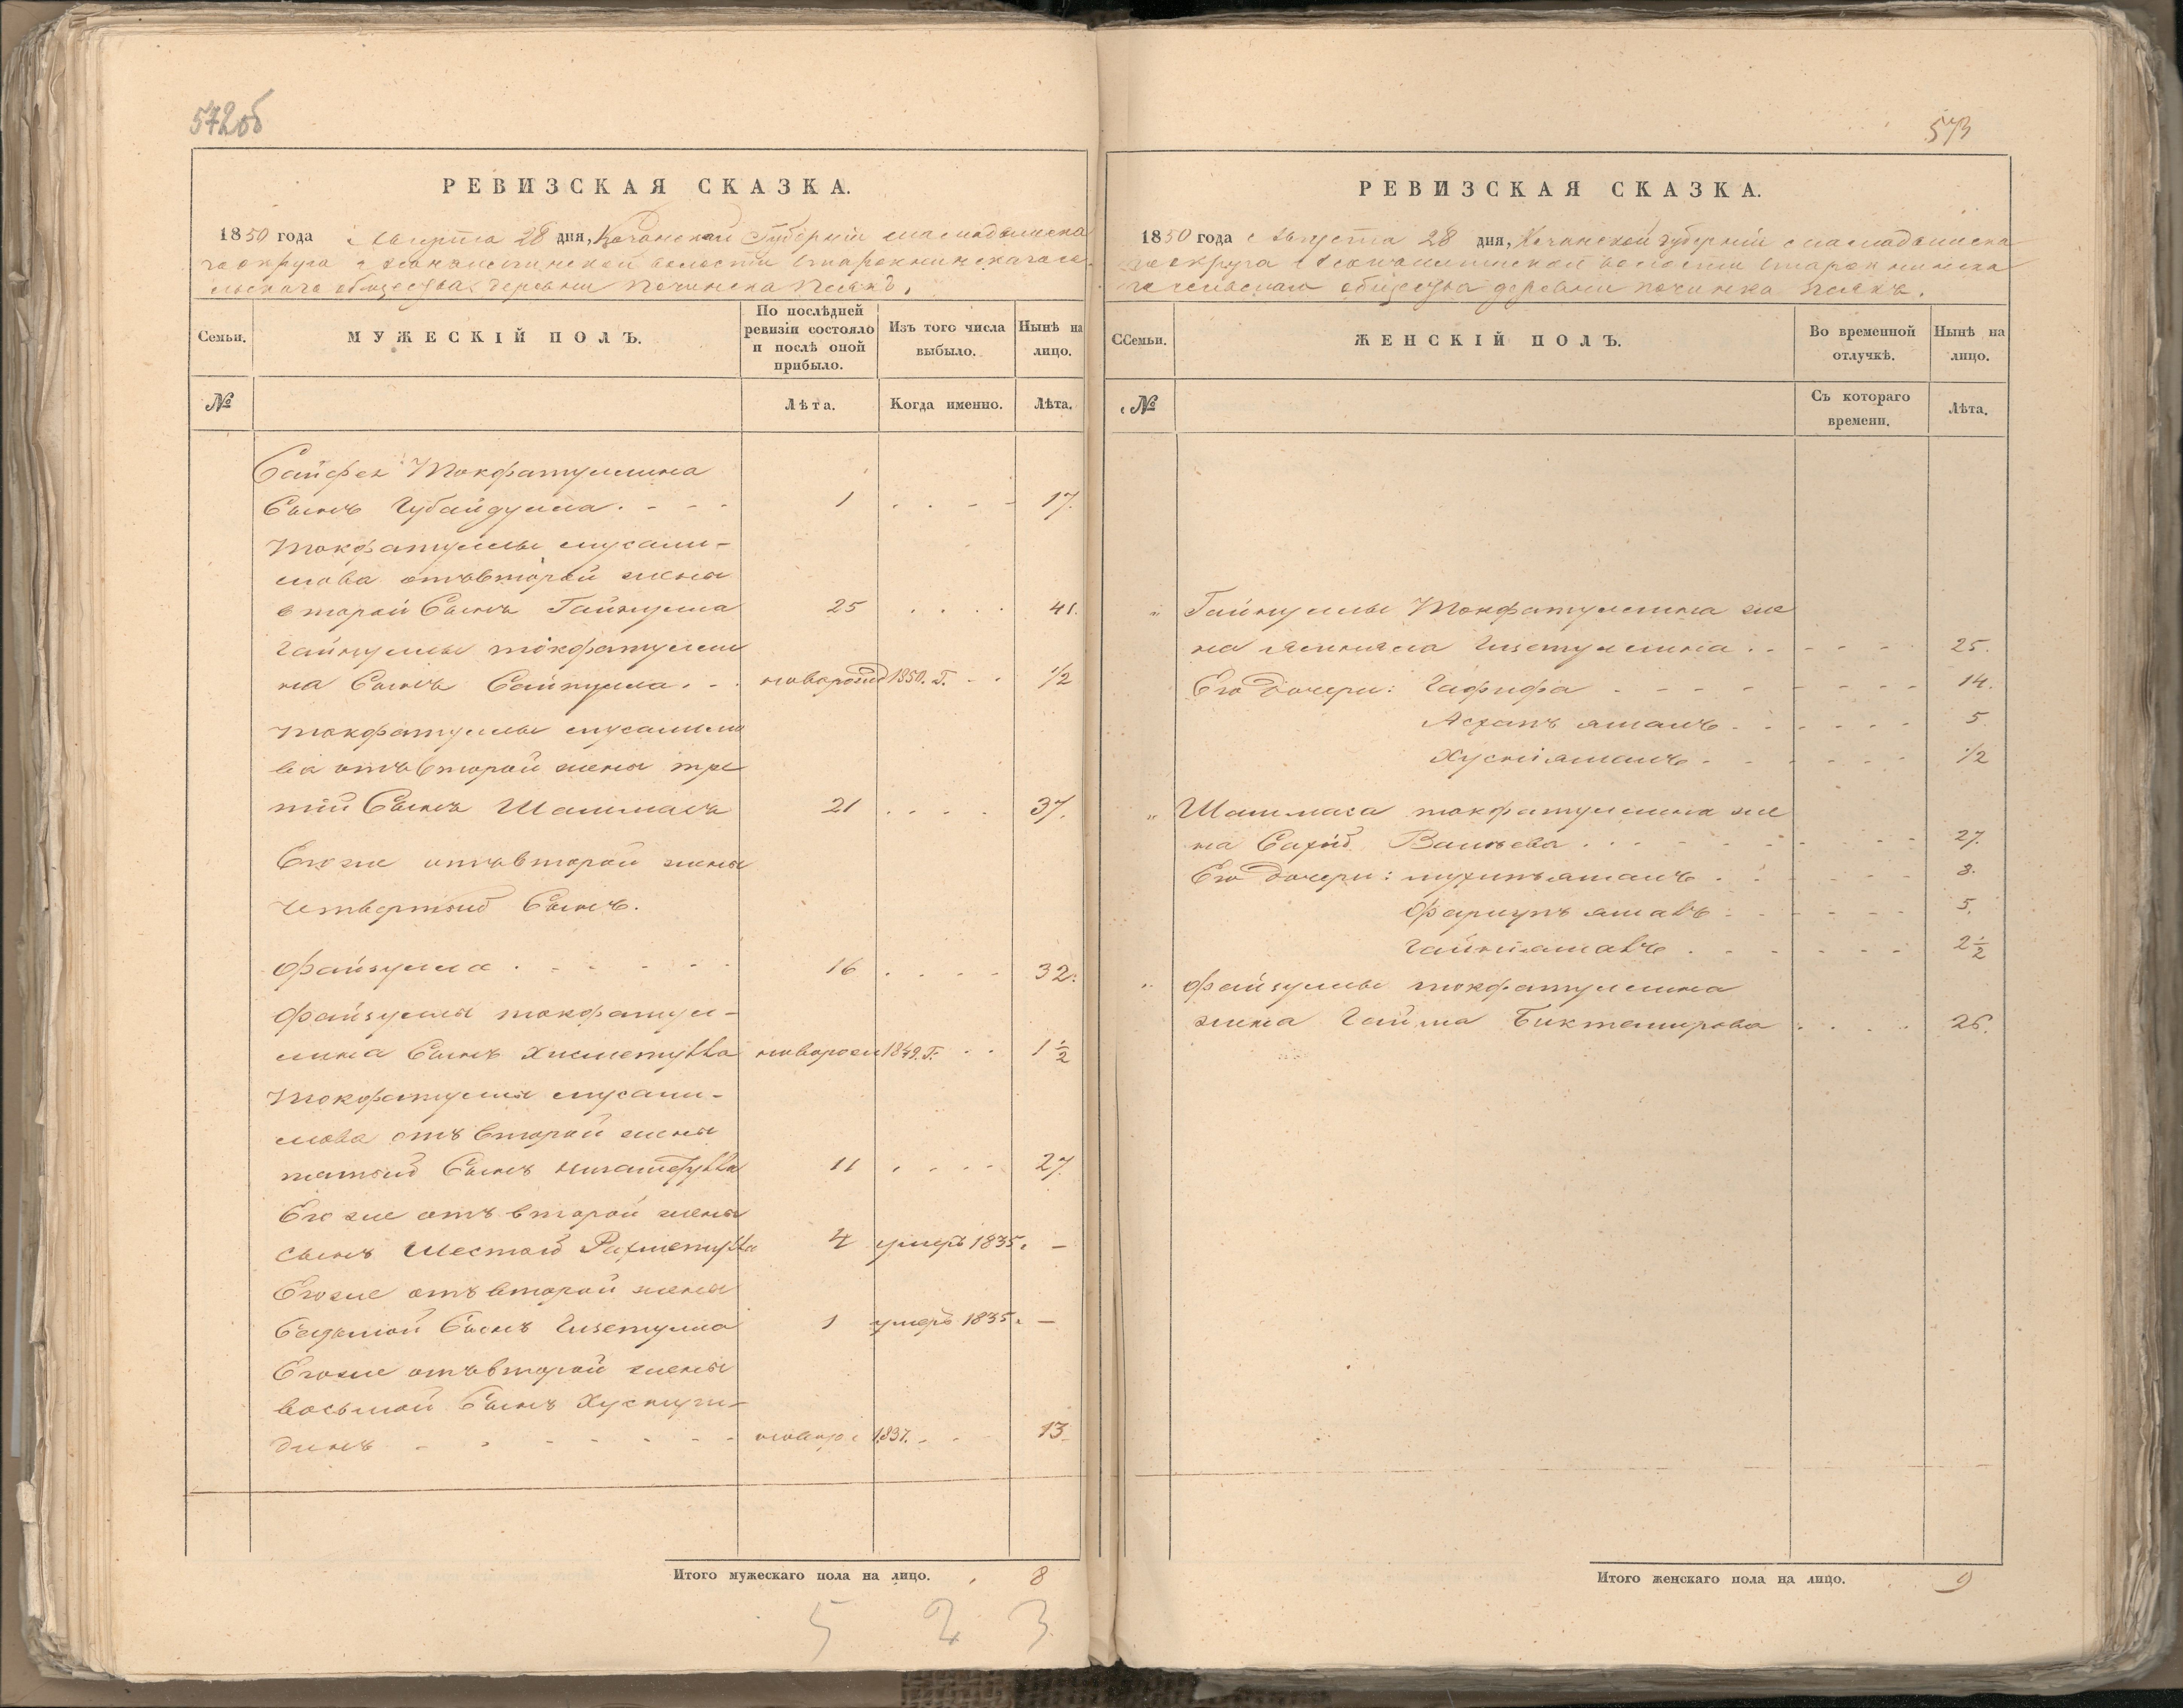 572об
РЕВИЗСКАЯ СКАЗКА.
1850 года Августа 28 дня, Казанской Губерніи Мамадышска
го округа волости
сельскаго общества деревни Починка
Семьи.
МУЖЕСКІЙ ПОЛЪ.
По послѣдней
ревизіи состояло
и послѣ оной
прибыло.
Изъ того числа
выбыло.
Нынѣ на
лицо.
№
Лѣта.
Когда именно.
Лѣта.
Сайфея Токфатуллина
Сынъ Губайдулла. 1 17.
Токфатуллы мусали-
мова отъ второй жены
второй Сынъ Гайнулла 25 41.
Гайнуллы токфатулли
на Сынъ Сайпулла. новорожд 1850. г. 1/2
Токфатуллы мусалимо
ва отъ второй жены тре
тій Сынъ Шаммасъ 21 37.
Его же отъ второй жены
четвертый Сынъ.
Файзулла 16 32.
Файзуллы токфатул-
лина Сынъ Хисметулла новорож 1849. г. 1 1/2
Токфатуллы мусали-
мова отъ второй жены
пятый Сынъ Нигаметулла 11 27
Его же отъ второй жены
сынъ Шестой Рахметулла 4 умеръ 1835. —
Его же отъ второй жены
Седьмой Сынъ Гизетулла 1 умеръ 1835. —
Его же отъ второй жены
восьмой Сынъ Хуснути-
динъ новор 1837. 13
Итого мужескаго пола на лицо. 8
5 2 3
573
РЕВИЗСКАЯ СКАЗКА.
1850 года Августа 28 дня, Казанской губерніи Мамадышска
го округа волости
го сельскаго общества деревни починка
ССемьи.
ЖЕНСКІЙ ПОЛЪ.
Во временной
отлучкѣ.
Нынѣ на
лицо.
№
Съ котораго
времени.
Лѣта.
" Гайнуллы Токфатуллина же
на Гизетуллина 25.
Его дочери: Гафифа 14.
Асхапъ ямалъ 5
Хусніямалъ 1/2
" Шаммаса токфатуллина же
на Валѣева 27.
Его дочери: ямалъ 3.
ямалъ 5.
Гайніямалъ 2 1/2
" Файзуллы токфатуллина
жена Гайша Биктемирова 26.
Итого женскаго пола на лицо. 9